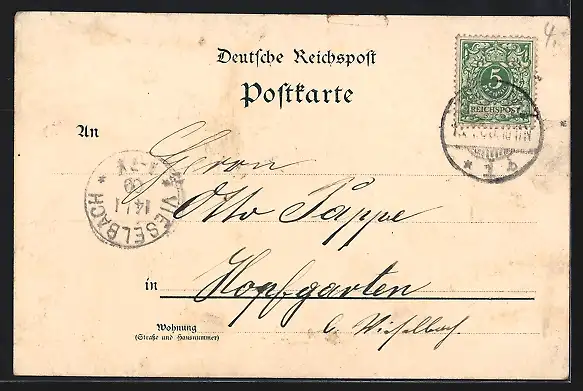 4.
Deutsche Reichspost
Postkarte
5
REICHSPOST
An
Herrn
Otto Pappe
VIESELBACH
14/1
in Hopfgarten
b. Vieselbach
Wohnung
(Straße und Hausnummer)